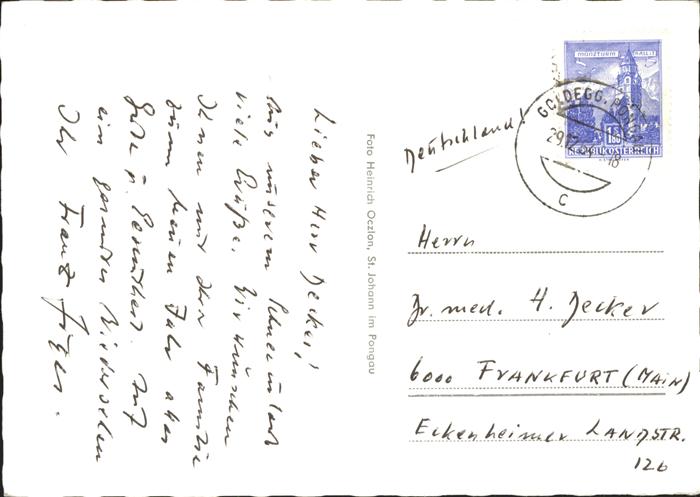 Lieber Herr Decker!
Aus unserem Schneeurlaub
viele Grüße. Wir wünschen
Ihnen und Ihrer Familie
zum neuen Jahr alles
Gute u. Gesundheit. Auf
ein gesundes Wiedersehen
Ihr Frantz
Foto Heinrich Oczlon, St. Johann im Pongau
MÜNZTURM HALL i. T.
1.80
REPUBLIK ÖSTERREICH
GOLDEGG, PONGAU
29.12.
18
C
Deutschland!
Herrn
Dr. med. H. Decker
6000 FRANKFURT (MAIN)
Eckenheimer LANDSTR.
126